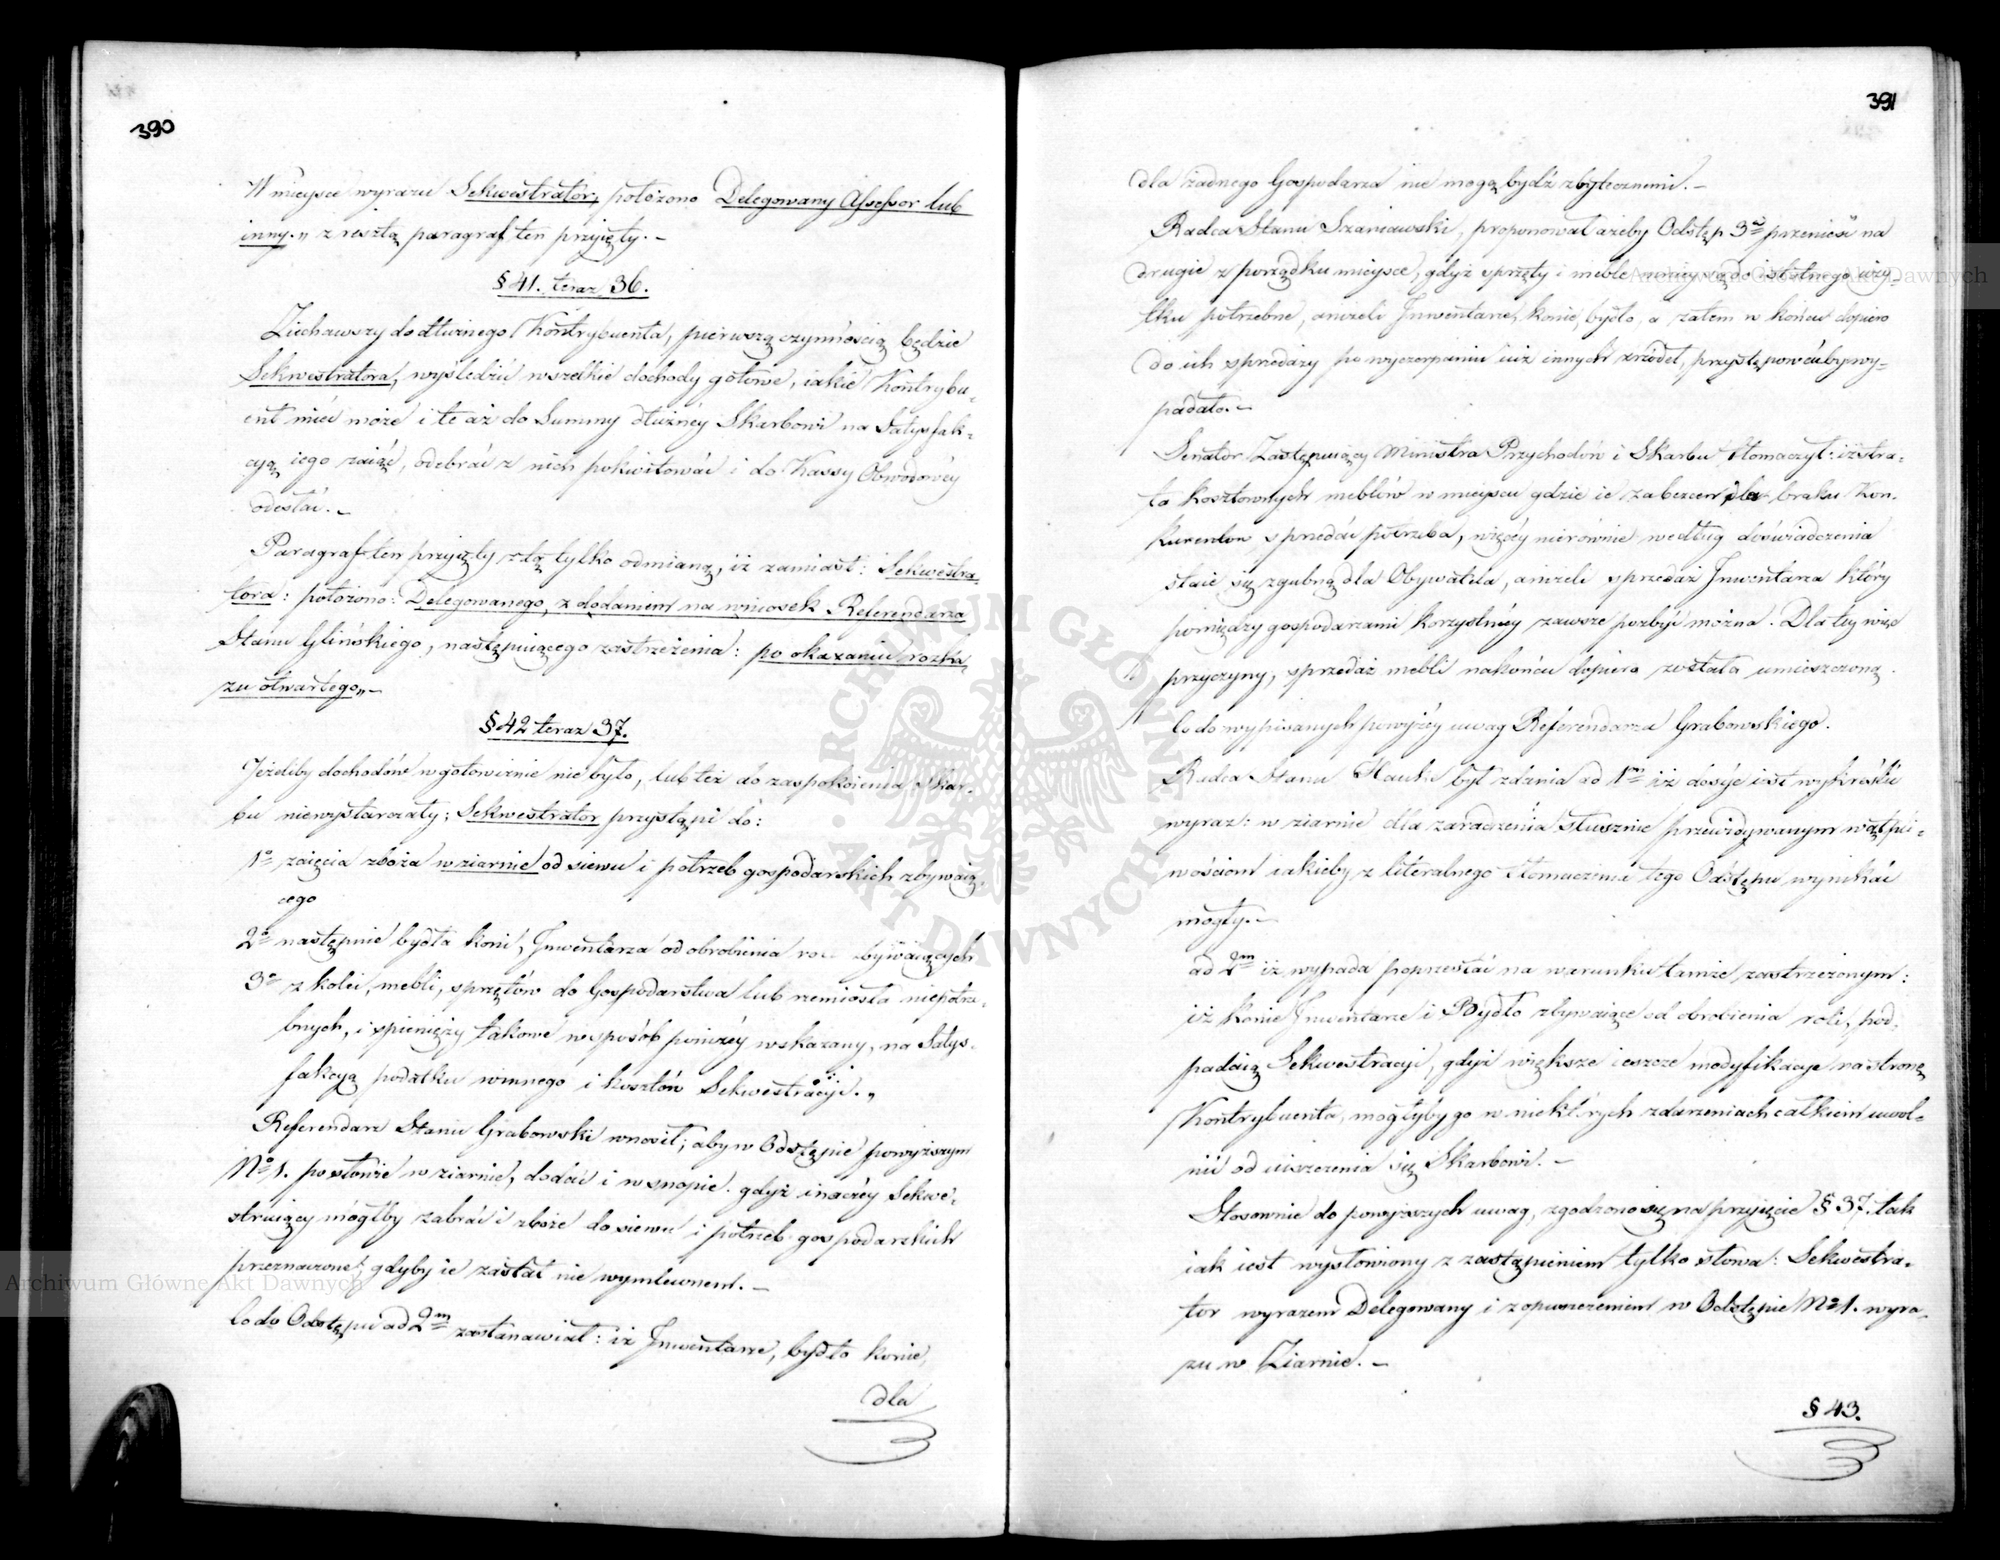 390
W mieysce wyrazu Sekwestrator, położono Delegowany Assessor lub
inny.„ z resztą paragraf ten przyięty. –
§ 41. teraz 36.
Ziechawszy do dłużnego Kontrybuenta, pierwszą czynnością będzie
Sekwestratora, wyśledzić wszelkie dochody gotowe, iakie Kontrybu-
ent mieć może i te aż do Summy dłużney Skarbowi na Satysfak-
cyą iego zaiąć, odebrać z nich pokwitować i do Kassy Obwodowey
odesłać. –
Paragraf ten przyięty z tą tylko odmianą, iż zamiast: Sekwestra
tora: położono: Delegowanego, z dodaniem na wniosek Referendarza
Stanu Glińskiego, następuiącego zastrzeżenia: po okazaniu rozka
zu otwartego„ –
§ 42 teraz 37.
Jeżeliby dochodów w gotowiznie nie było, lub też do zaspokoienia Skar-
bu niewystarczały; Sekwestrator przystąpi do:
1o zaięcia zboża w ziarnie od siewu i potrzeb gospodarskich zbywaią-
cego
2o następnie bydła koni, Inwentarza od obrobienia roli zbywaiących
3o z kolei, mebli, sprzętów do Gospodarstwa lub rzemiosła niepotrze-
bnych, i spienięży takowe w sposób poniżey wskazany, na Satys-
fakcyą podatku winnego i kosztów Sekwestracyi.„
Referendarz Stanu Grabowski wnosił, aby w Odstępie powyższym
No 1. po słowie w ziarnie, dodać i w snopie. gdyż inaczey Sekwe-
struiący mógłby zabrać i zboże do siewu i potrzeb gospodarskich
przeznaczone, gdyby ie zastał nie wymłócone. –
Co do Odstępu ad 2m zastanawiał: iż Inwentarze, bydło konie,
dla
391
dla żadnego Gospodarza nie mogą bydź zbytecznemi. –
Radca Stanu Szaniawski, proponował ażeby Odstęp 3ci przenieść na
drugie z porządku mieysce, gdyż sprzęty i meble mniey są do istotnego uży-
tku potrzebne, aniżeli Inwentarze, konie, bydło, a zatem w końcu dopiero
do ich sprzedaży po wyczerpaniu iuż innych źródeł, przystępować by wy-
padało. –
Senator Zastępuiący Ministra Przychodów i Skarbu tłomaczył: iż stra-
ta kosztownych meblów w mieyscu gdzie ie za bezcen dla braku Kon-
kurentów sprzedać potrzeba, więcey nierównie według doświadczenia
staie się zgubną dla Obywatela, aniżeli sprzedaż Inwentarza który
pomiędzy gospodarzami korzystniey zawsze pozbyć można. Dla tey więc
przyczyny, sprzedaż mebli na końcu dopiero została umieszczoną.
Co do wypisanych powyżey uwag Referendarza Grabowskiego.
Radca Stanu Hauke był zdania ad 1m iż dosyć iest wykreślić
wyraz: w ziarnie dla zaradzenia słusznie przewidywanym wątpli-
wościom iakieby z literalnego tłomaczenia tego Odstępu wynikać
mogły. –
ad 2m iż wypada poprzestać na warunku tamże zastrzeżonym:
iż Konie Inwentarze i Bydło zbywaiące od obrobienia roli, pod-
padaią Sekwestracyi, gdyż większe ieszcze modyfikacye na stronę
Kontrybuenta, mogłyby go w niektórych zdarzeniach całkiem uwol-
nić od uiszczenia się Skarbowi. –
Stosownie do powyższych uwag, zgodzono się na przyięcie § 37. tak
iak iest wysłowiony z zastąpieniem tylko słowa: Sekwestra-
tor wyrazem Delegowany i z opuszczeniem w Odstępie No 1. wyra-
zu w Ziarnie. –
§ 43.
Archiwum Główne Akt Dawnych
Archiwum Główne Akt Dawnych
ARCHIWUM GŁÓWNE · AKT DAWNYCH ·